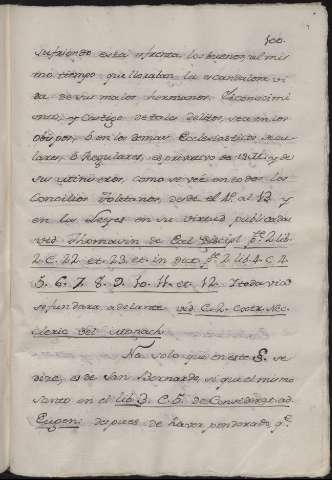 100.
sufriendo esta afrenta los buenos, al mis
mo tiempo que lloraban la escandalosa vi
da de sus malos hermanos. El conocimi
ento, y castigo de tales delitos, sea en los
Obispos, ó en los demas Eclesiasticos secu
lares, ó Regulares, es privativo de
sus como se vee en todos los
Concilios Toletanos, desde el 4º al 12 y
en las Leyes en su virtud publicadas
vid Thomasin de Ecl. Discipl. pᵉ. 2. lib.
2. C. 22. et. 23. et. in dict. pᵉ. 2. lib. 4. C. 4.
5. 6. 7. 8. 9. 10. 11. et. 12. Y todavia
se fundara adelante vid C. 2.
Cleric. vel Monach.
No solo que en este §. se
dice, es de San Bernardo, si que el mismo
Santo en el lib. 3. C. 5. de Considerat. ad
Eugeni despues de haver ponderado, qᵉ.